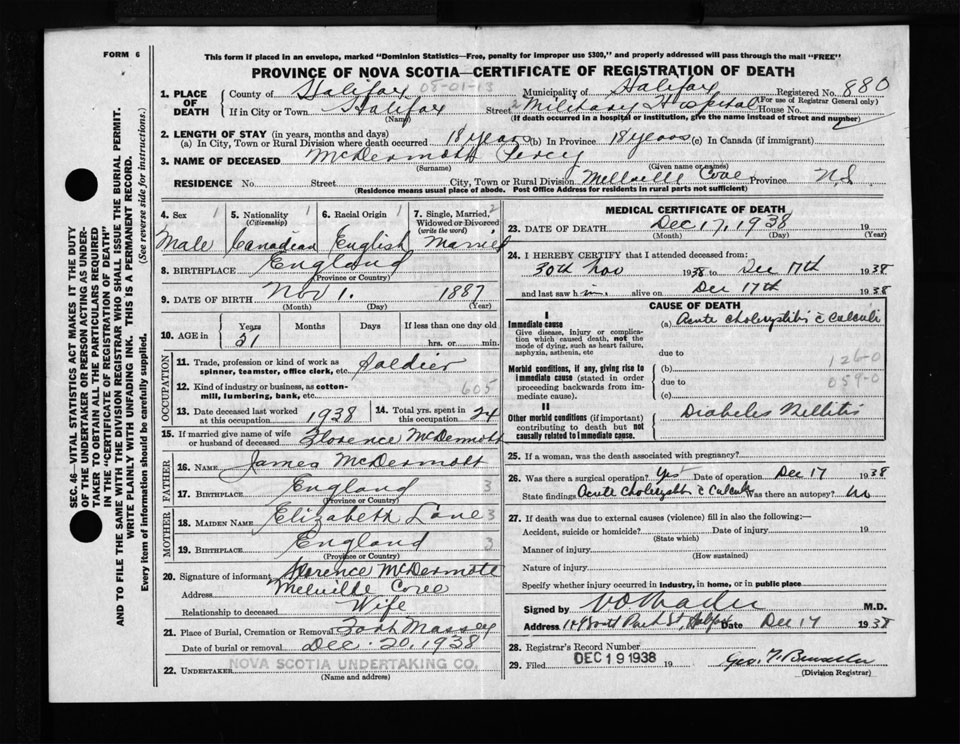 FORM 6
This form if placed in an envelope, marked "Dominion Statistics—Free, penalty for improper use $300," and properly addressed will pass through the mail "FREE"
PROVINCE OF NOVA SCOTIA—CERTIFICATE OF REGISTRATION OF DEATH
SEC. 46—VITAL STATISTICS ACT MAKES IT THE DUTY
OF THE UNDERTAKER OR PERSON ACTING AS UNDER-
TAKER TO OBTAIN ALL THE PARTICULARS REQUIRED
IN THE "CERTIFICATE OF REGISTRATION OF DEATH"
AND TO FILE THE SAME WITH THE DIVISION REGISTRAR WHO SHALL ISSUE THE BURIAL PERMIT.
WRITE PLAINLY WITH UNFADING INK. THIS IS A PERMANENT RECORD.
Every item of information should be carefully supplied. (See reverse side for instructions.)
1. PLACE OF DEATH
County of Halifax 05-01-13 Municipality of Halifax Registered No. 880
(For use of Registrar General only)
If in City or Town Halifax Street 2 Military Hospital House No.
(Name) (If death occurred in a hospital or institution, give the name instead of street and number)
2. LENGTH OF STAY (in years, months and days)
(a) In City, Town or Rural Division where death occurred 18 years (b) In Province 18 years (c) In Canada (if immigrant)
3. NAME OF DECEASED McDermott Percy
(Surname) (Given name or names)
RESIDENCE No. Street City, Town or Rural Division Melville Cove Province N.S
(Residence means usual place of abode. Post Office Address for residents in rural parts not sufficient)
4. Sex 1 Male
5. Nationality (Citizenship) 1 Canadian
6. Racial Origin 1 English
7. Single, Married, Widowed or Divorced (write the word) 2 Married
8. BIRTHPLACE England
(Province or Country)
9. DATE OF BIRTH Nov 1. 1887
(Month) (Day) (Year)
10. AGE in Years 51 Months Days If less than one day old hrs. or min.
OCCUPATION
11. Trade, profession or kind of work as spinner, teamster, office clerk, etc. Soldier
12. Kind of industry or business, as cotton-mill, lumbering, bank, etc. 605
13. Date deceased last worked at this occupation 1938
14. Total yrs. spent in this occupation 24
15. If married give name of wife or husband of deceased Florence McDermott
FATHER
16. Name James McDermott
17. Birthplace England 3
(Province or Country)
MOTHER
18. Maiden Name Elizabeth Lane 3
19. Birthplace England 3
(Province or Country)
20. Signature of informant Florence McDermott
Address Melville Cove
Relationship to deceased Wife
21. Place of Burial, Cremation or Removal Fort Massey
Date of burial or removal Dec. 20, 1938
22. UNDERTAKER NOVA SCOTIA UNDERTAKING CO.
(Name and address)
MEDICAL CERTIFICATE OF DEATH
23. DATE OF DEATH Dec 17, 1938
(Month) (Day) (Year)
24. I HEREBY CERTIFY that I attended deceased from:
30th Nov 1938 to Dec 17th 1938
and last saw him alive on Dec 17th 1938
CAUSE OF DEATH
I
Immediate cause
Give disease, injury or complication which caused death, not the mode of dying, such as heart failure, asphyxia, asthenia, etc
(a) Acute cholecystitis c̄ calculi
due to
Morbid conditions, if any, giving rise to immediate cause (stated in order proceeding backwards from immediate cause).
(b) 126-0
due to 059-0
(c)
II
Other morbid conditions (if important) contributing to death but not causally related to immediate cause.
Diabetes Mellitis
25. If a woman, was the death associated with pregnancy?
26. Was there a surgical operation? yes Date of operation Dec 17 1938
State findings Acute cholecystitis c̄ calculi Was there an autopsy? No
27. If death was due to external causes (violence) fill in also the following:—
Accident, suicide or homicide? Date of injury 19
(State which)
Manner of injury
(How sustained)
Nature of injury
Specify whether injury occurred in industry, in home, or in public place
Signed by M.D.
Address South Park St, Halifax Date Dec 17 1938
28. Registrar's Record Number
29. Filed DEC 19 1938 19
(Division Registrar)